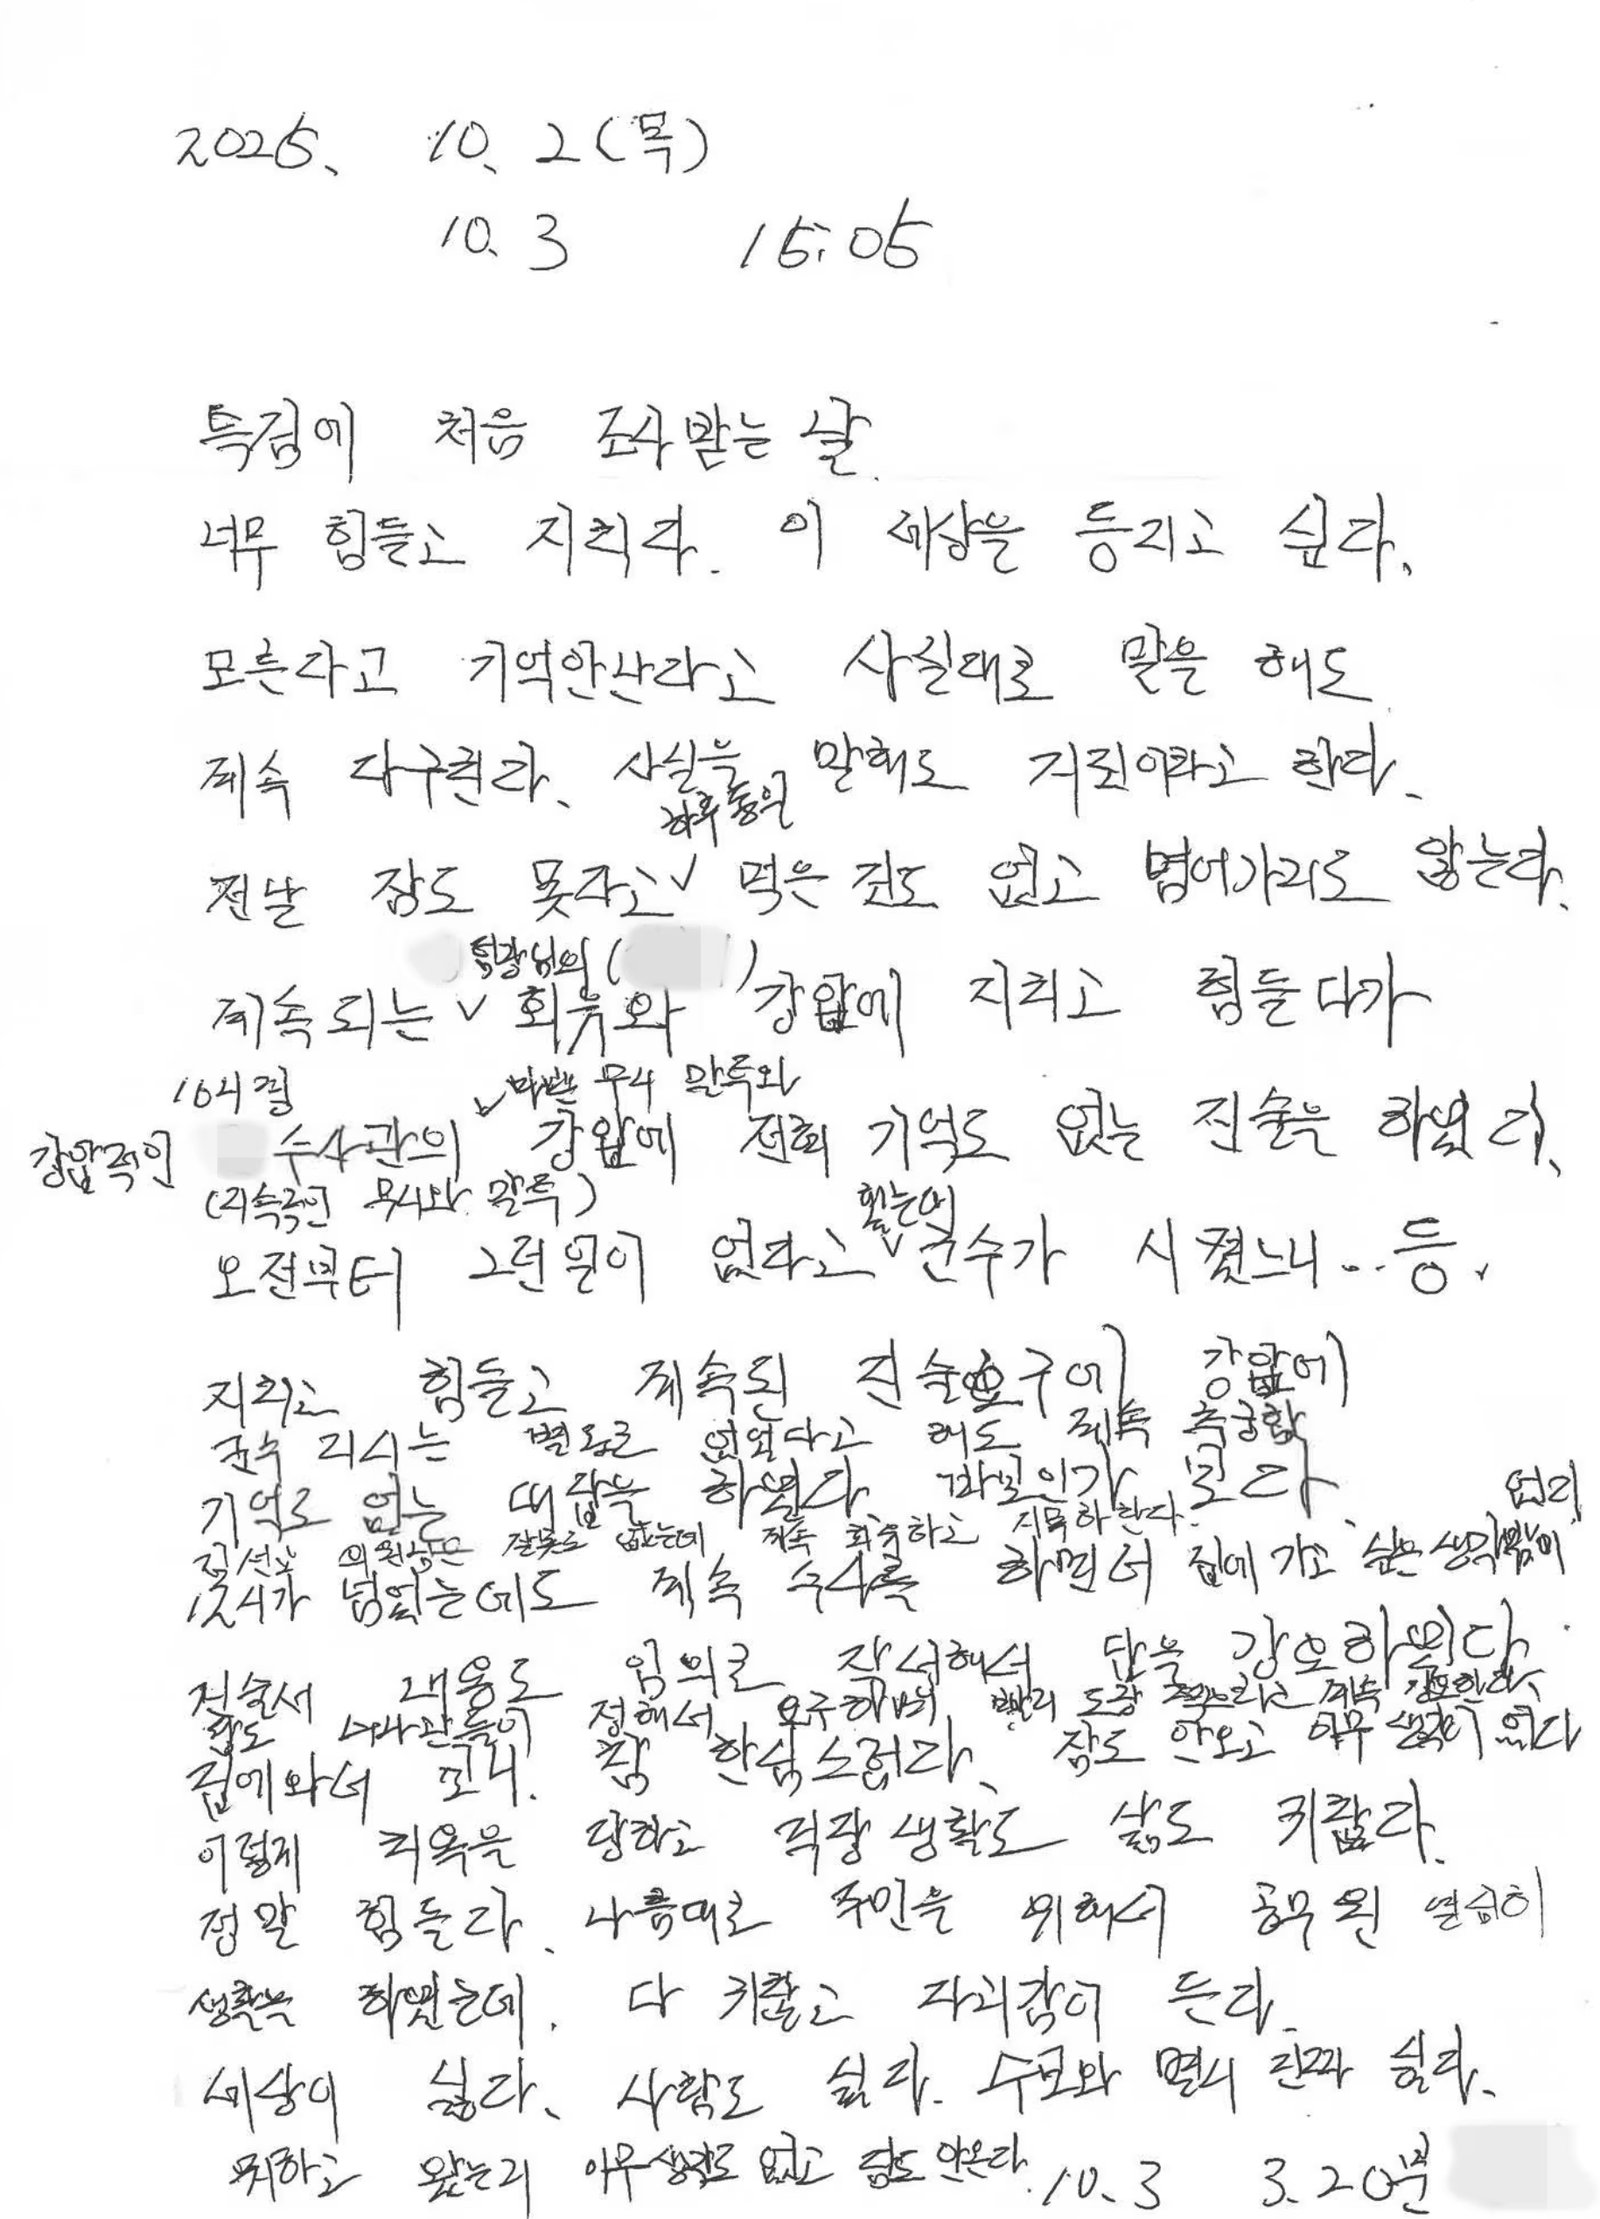 2025. 10. 2 (목)
10. 3 15:05
특검에 처음 조사받는 날.
너무 힘들고 지치다. 이 세상을 등지고 싶다.
모른다고 기억안난다고 사실대로 말을 해도
계속 다구친다. 사실을 말해도 거짓이라고 한다.
하루종일
전날 잠도 못자고 ∨ 먹은 것도 없고 넘어가지도 않는다.
팀장님의 ( )
계속되는 ∨ 회유와 강압에 지치고 힘들다가
10시경 ∨ 무시 말투와
강압적인 수사관의 강압에 전혀 기억도 없는 진술을 하였다.
(지속적인 무시와 말투)
오전부터 그런일이 없다고 ∨ 군수가 시켰느니.. 등.
지치고 힘들고 계속된 진술요구에 강압에
군수 지시는 별도로 없었다고 해도 계속 추궁함
기억도 없는 대답을 하였다. 바보인가 보다.
김선교 의원님은 잘못도 없는데 계속 회유하고 지목하란다. 없다
12시가 넘었는데도 계속 수사를 하면서 집에 가고 싶은 생각밖에
진술서 내용도 임의로 작성해서 답을 강요하였다.
답도 수사관들이 정해서 요구하며 빨리 도장 찍으라고 계속 강요한다.
집에와서 보니. 참 한심스럽다. 잠도 안오고 아무 생각이 없다
이렇게 치욕을 당하고 직장생활도 삶도 귀찮다.
정말 힘들다. 나름대로 주민을 위해서 공무원 열심히
생활을 하였는데. 다 귀찮고 자괴감이 든다.
세상이 싫다. 사람도 싫다. 수모와 멸시 진짜 싫다.
뭐하고 왔는지 아무생각도 없고 잠도 안온다. 10. 3 3. 20분